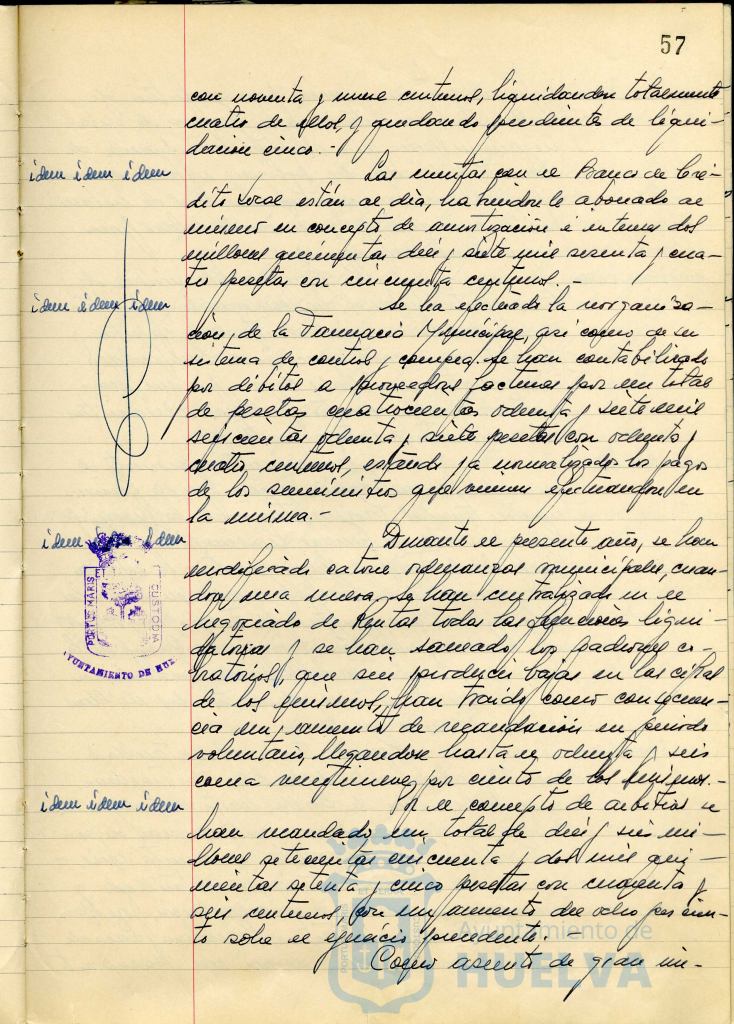 57
con noventa y nueve centimos, liquidandose totalmente
cuatro de ellos, y quedando pendientes de liqui-
dación cinco.-
idem idem idem
Las cuentas con el Banco de Cré-
dito Local están al día, habiendosele abonado al
mismo en concepto de amortización é intereses dos
millones quinientas diez y siete mil sesenta y cua-
tro pesetas con cincuenta centimos.-
idem idem idem
Se ha efectuado la reorganiza-
ción de la Farmacia Municipal, así como de su
sistema de control y compra. Se han contabilizado
por débitos a proveedores facturas por un total
de pesetas cuatrocientas ochenta y siete mil
seiscientas ochenta y siete pesetas con ochenta y
cuatro centimos, estando ya normalizados los pagos
de los suministros que vienen efectuandose en
la misma.-
idem idem idem
Durante el presente año, se han
modificado catorce ordenanzas municipales, crean-
dose una nueva, se han centralizado en el
Negociado de Rentas todas las funciones liqui-
datorias y se han saneado los padrones co-
bratorios, que sin producir bajas en las cifras
de los mismos, han traído como consecuen-
cia un aumento de recaudación en período
voluntario, llegandose hasta el ochenta y seis
coma veintinueve por ciento de los mismos.-
idem idem idem
Por el concepto de arbitrios se
han recaudado un total de diez y seis mi-
llones setecientas cincuenta y dos mil qui-
nientas setenta y cinco pesetas con cincuenta y
seis centimos, con un aumento del ocho por cien-
to sobre el ejercicio precedente.
Como asunto de gran im-
PORTUS MARIS
ET
CUSTODIA
AYUNTAMIENTO DE HUE
Ayuntamiento de
HUELVA